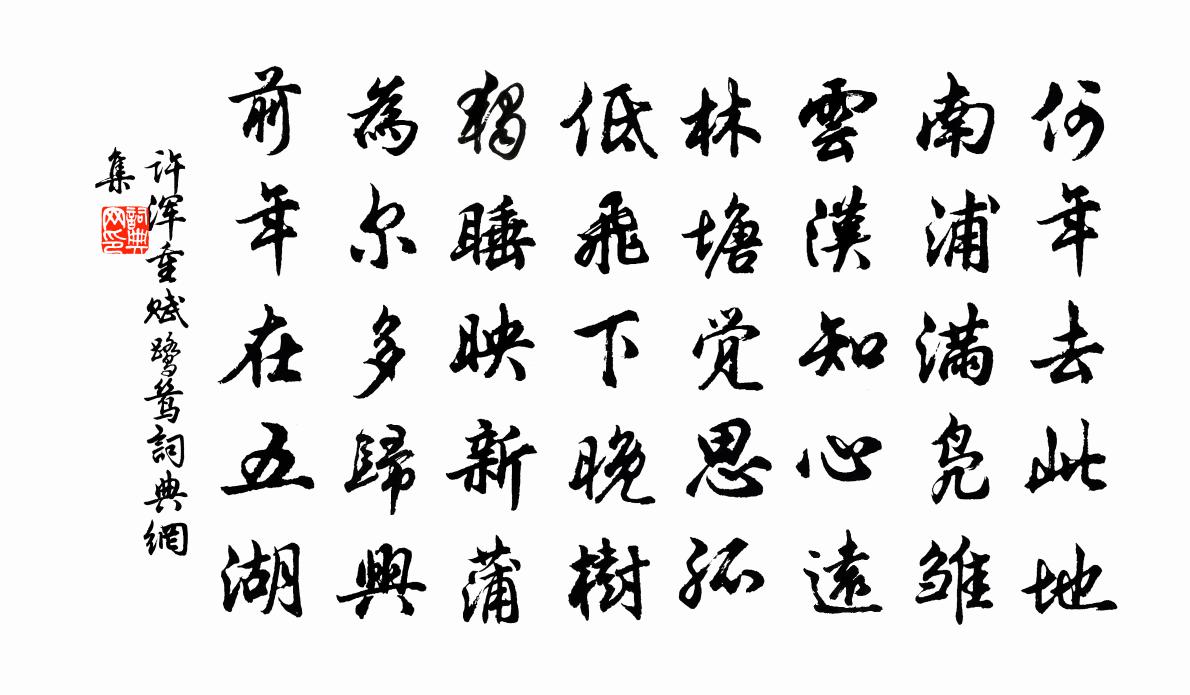 何年去此地
南浦满凫雛
雲漢知心遠
林塘覚思孤
低飛下晚樹
獨睡映新蒲
為尔多歸興
前年在五湖
许渾重賦鷺鷥詞典網
集
詞典
网印